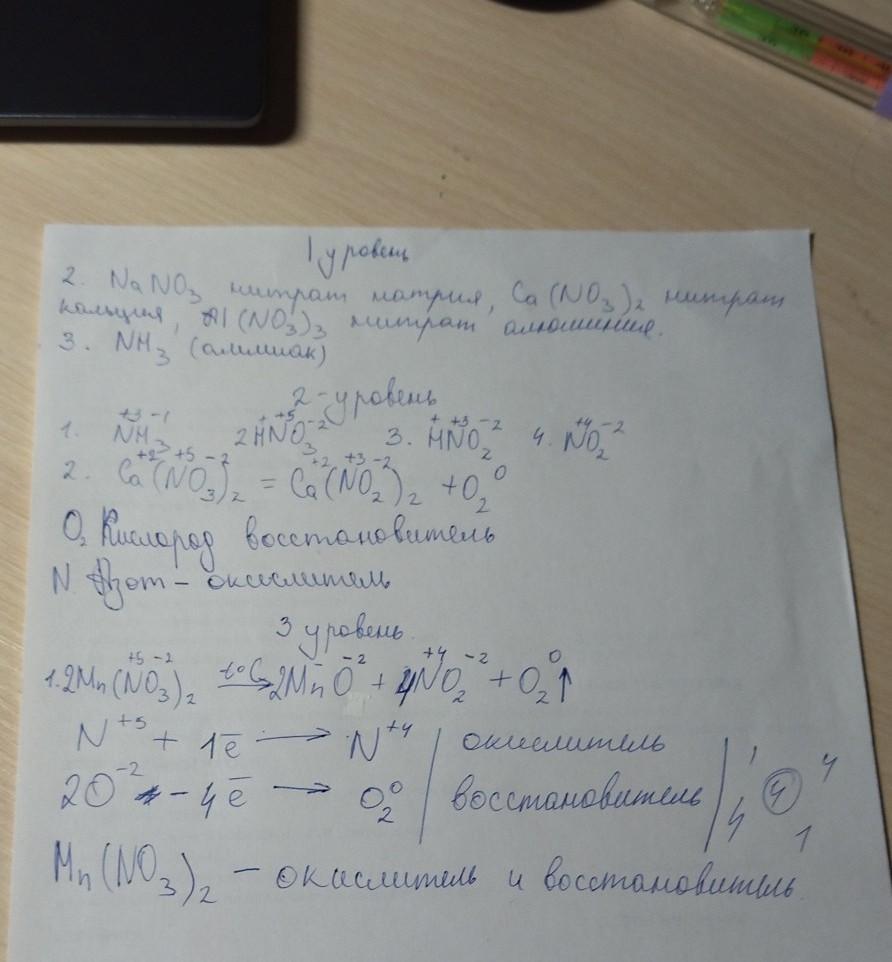 1 уровень
2. NaNO₃ нитрат натрия, Ca(NO₃)₂ нитрат
кальция, Al(NO₃)₃ нитрат алюминия.
3. NH₃ (аммиак)
2-уровень
+3 -1 + +5 -2 + +3 -2 +4 -2
1. NH₃ 2HNO₃ 3. HNO₂ 4. NO₂
+2 +5 -2 +2 +3 -2 0
2. Ca(NO₃)₂ = Ca(NO₂)₂ + O₂
O₂ Кислород восстановитель
N Азот - окислитель
3 уровень.
+5 -2 - -2 +4 -2 0
1. 2Mn(NO₃)₂ t°C→ 2MnO + 4NO₂ + O₂↑
N⁺⁵ + 1ē → N⁺⁴ | окислитель | 1 4
2O⁻² - 4ē → O₂⁰ | восстановитель | 4 (4) 1
Mn(NO₃)₂ - окислитель и восстановитель